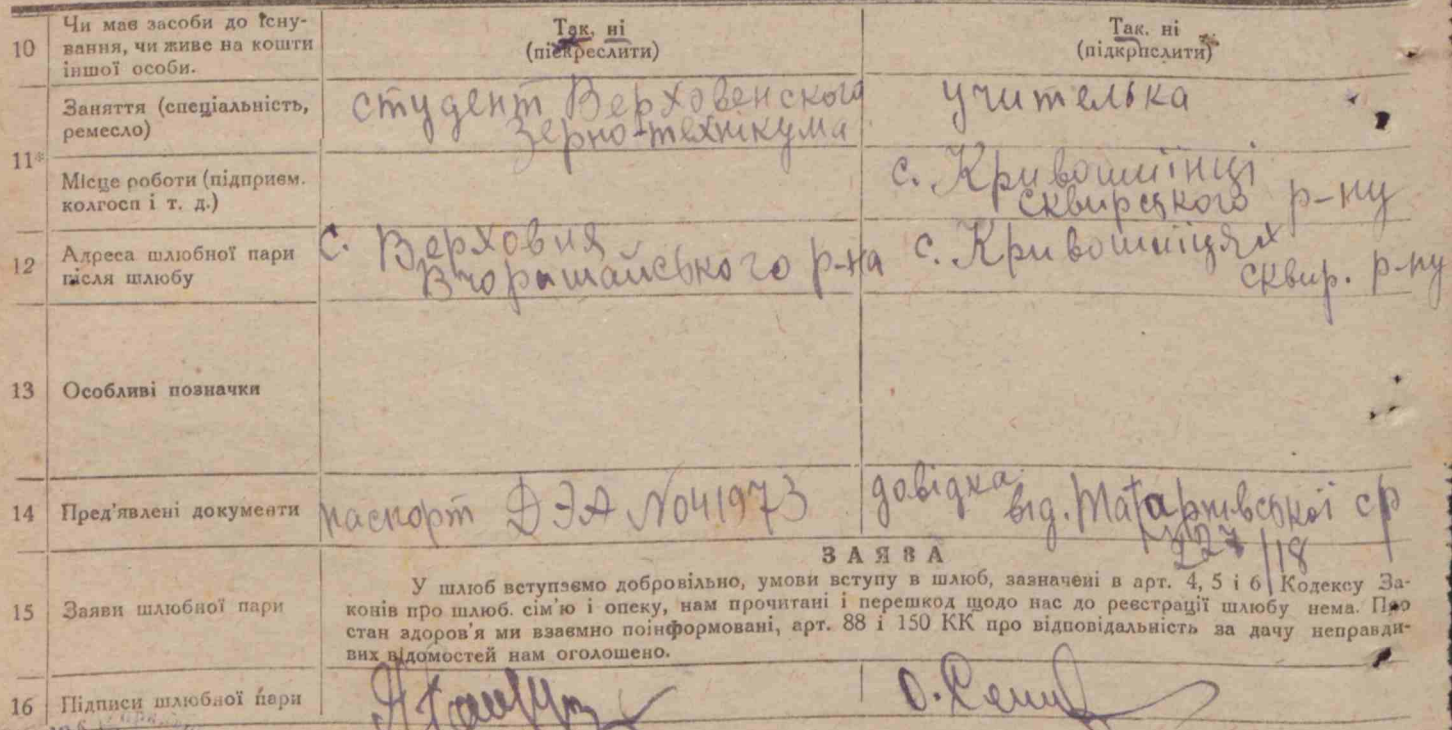 10 Чи має засоби до існу-
вання, чи живе на кошти
іншої особи.
Так, ні
(підкреслити)
Так, ні
(підкреслити)
11*
Заняття (спеціальність,
ремесло)
студент Верховенского
зерно-технікума
учителька
Місце роботи (підприєм.
колгосп і т. д.)
с. Кривошиїнці
сквирського р-ну
12 Адреса шлюбної пари
після шлюбу
с. Верховня
Вчорашайського р-на
с. Кривошиїцях
сквир. р-ну
13 Особливі позначки
14 Пред'явлені документи
паспорт ДЭА №041973
довідка
від. ср
227/18
15 Заяви шлюбної пари
ЗАЯВА
У шлюб вступаємо добровільно, умови вступу в шлюб, зазначені в арт. 4, 5 і 6 Кодексу За-
конів про шлюб. сім'ю і опеку, нам прочитані і перешкод щодо нас до реєстрації шлюбу нема. Про
стан здоров'я ми взаємно поінформовані, арт. 88 і 150 КК про відповідальність за дачу неправди-
вих відомостей нам оголошено.
16 Підписи шлюбної пари